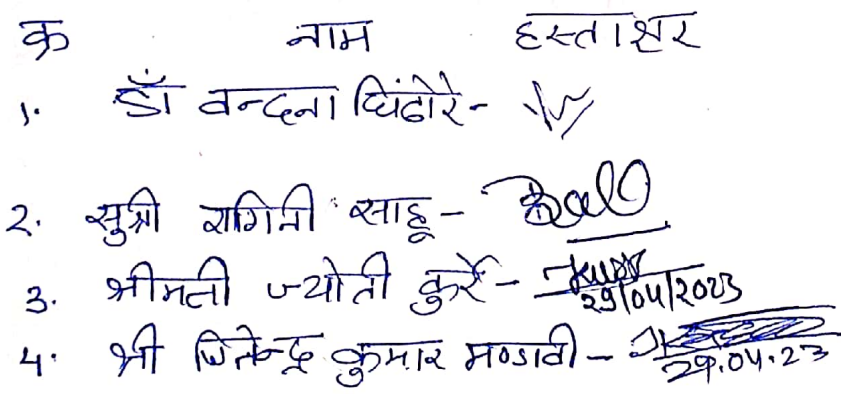 क्र नाम हस्ताक्षर
1. डॉ वन्दना घिंढोरे -
2. सुश्री रागिनी साहू -
3. श्रीमती ज्योती कुर्रे - 29/04/2023
4. श्री जितेन्द्र कुमार मण्डावी - 29.04.23